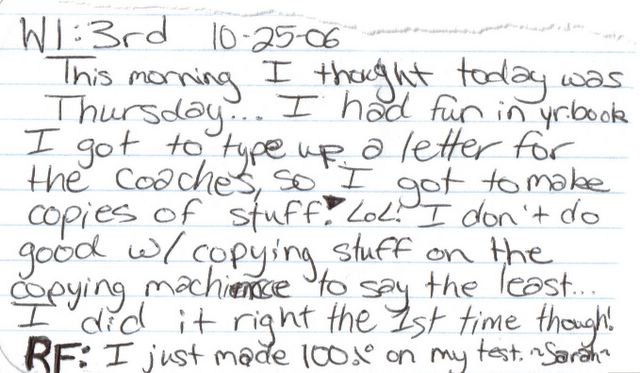 W1:3rd 10-25-06
This morning I thought today was
Thursday... I had fun in yr.book
I got to type up a letter for
the coaches, so I got to make
copies of stuff! LOL! I don't do
good w/ copying stuff on the
copying machience to say the least...
I did it right the 1st time though!
RF: I just made 100% on my test. ~Sarah~